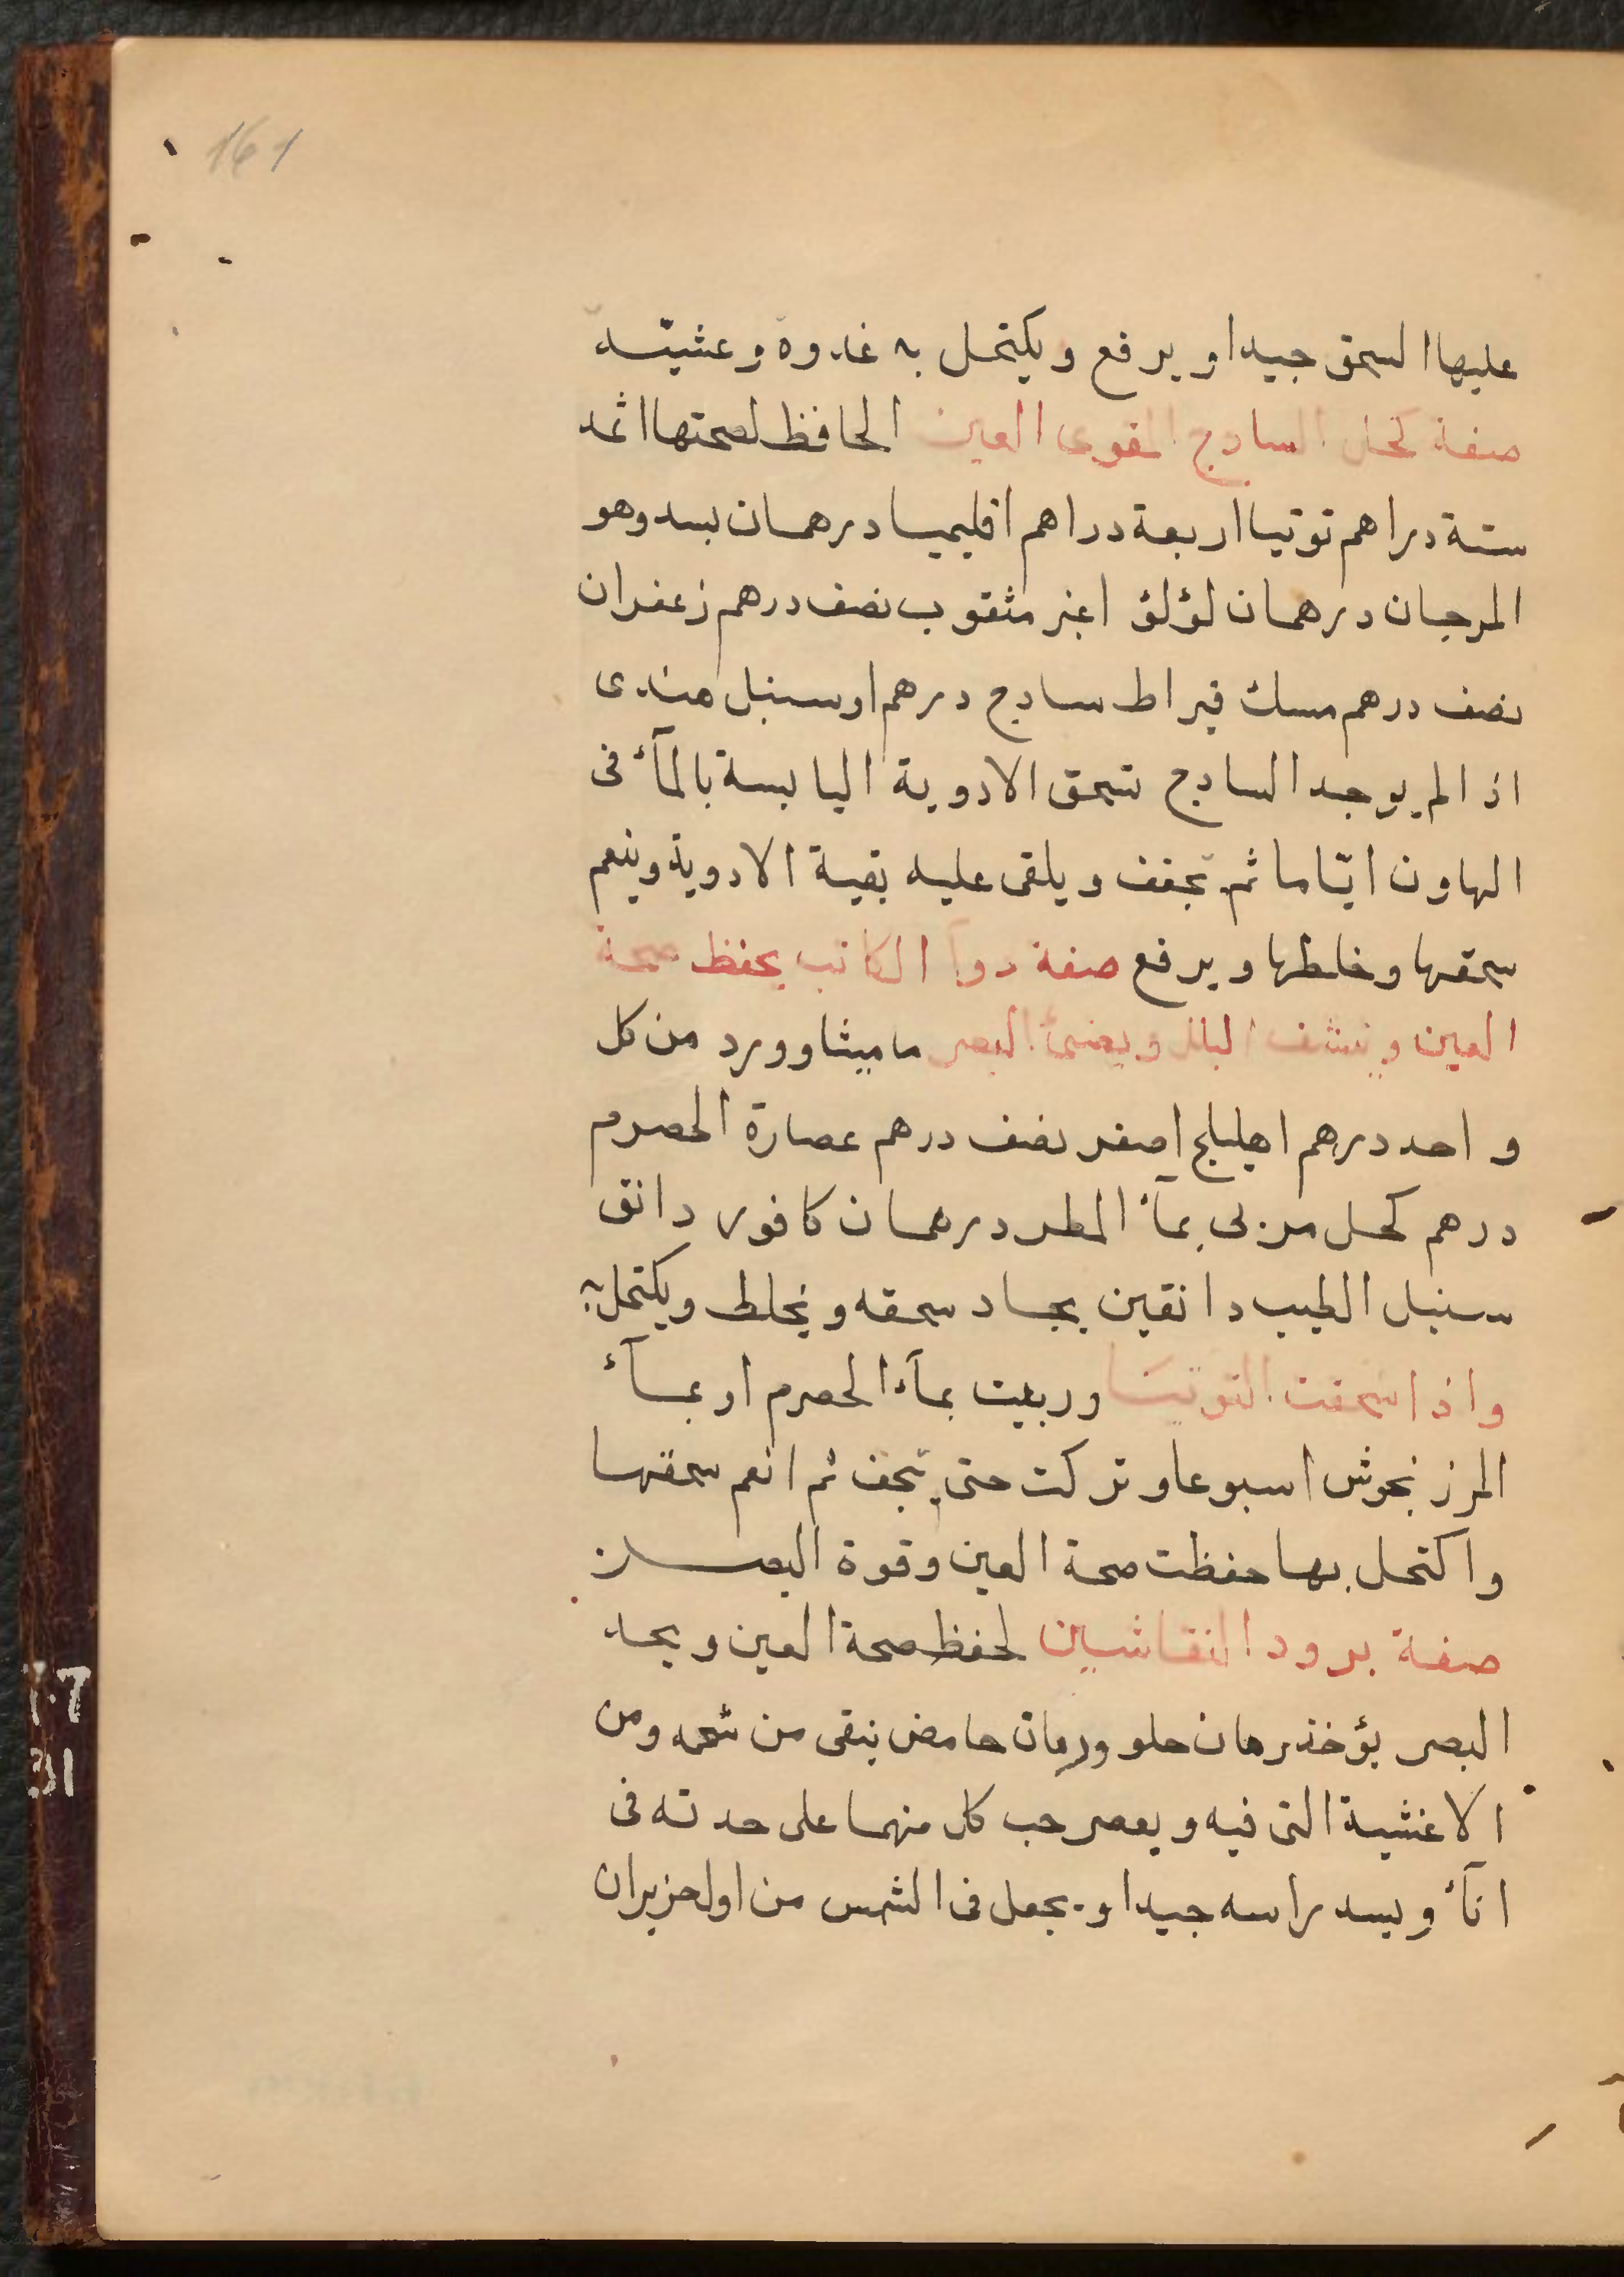 161
عليها السحق جيدا و يرفع و يكتحل به غدوة و عشيّه
صفة كحل السادج المقوى العين الحافظ لصحتها اثمد
ستة دراهم توتيا اربعة دراهم اقليميا درهمان بسد وهو
المرجان درهمان لؤلؤ اغبر مثقوب نصف درهم زعفران
نصف درهم مسك قيراط سادج درهم او سنبل هندى
اذا لم يوجد السادج تسحق الادوية اليابسة بالمآء فى
الهاون ايّاما ثم تجفف و يلقى عليه بقية الادوية وينعم
سحقها و خلطها و يرفع صفة دوآ الكاتب يحفظ صحة
العين و ينشف البلة و يضئ البصر ماميثا وورد من كل
واحد درهم اهليلج اصفر نصف درهم عصارة الحصرم
درهم كحل مربى بمآء المطر درهمان كافور دانق
سنبل الطيب دانقين يجاد سحقه و يخلط و يكتحل به
واذا سحقت التوتيا وربيت بمآء الحصرم او بمآء
المرزنجوش اسبوعا و تركت حتى تجف ثم انعم سحقها
واكتحل بها حفظت صحة العين وقوة البصر
صفة برود النقاشين لحفظ صحة العين و يحد
البصر يؤخذ رمان حلو ورمان حامض ينقى من شحمه ومن
الاغشية التى فيه و يعصر حب كل منهما على حدته فى
انآء و يسد راسه جيدا و يجعل فى الشمس من اول حزيران
7.7
31